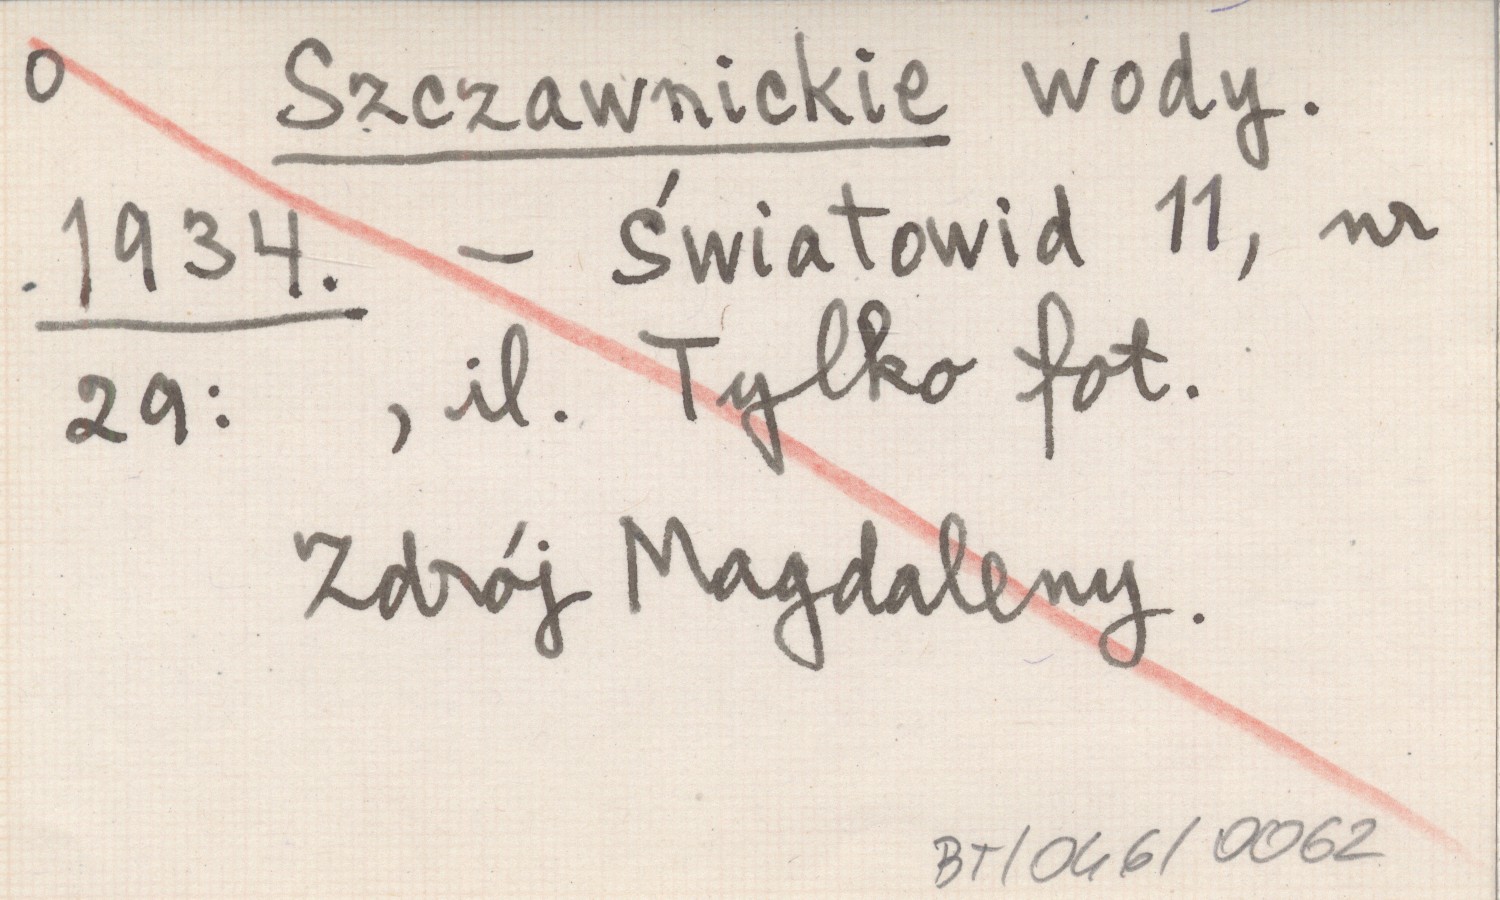 0 Szczawnickie wody.
1934. – Światowid 11, nr
29: , il. Tylko fot.
Zdrój Magdaleny.
BT/046/0062